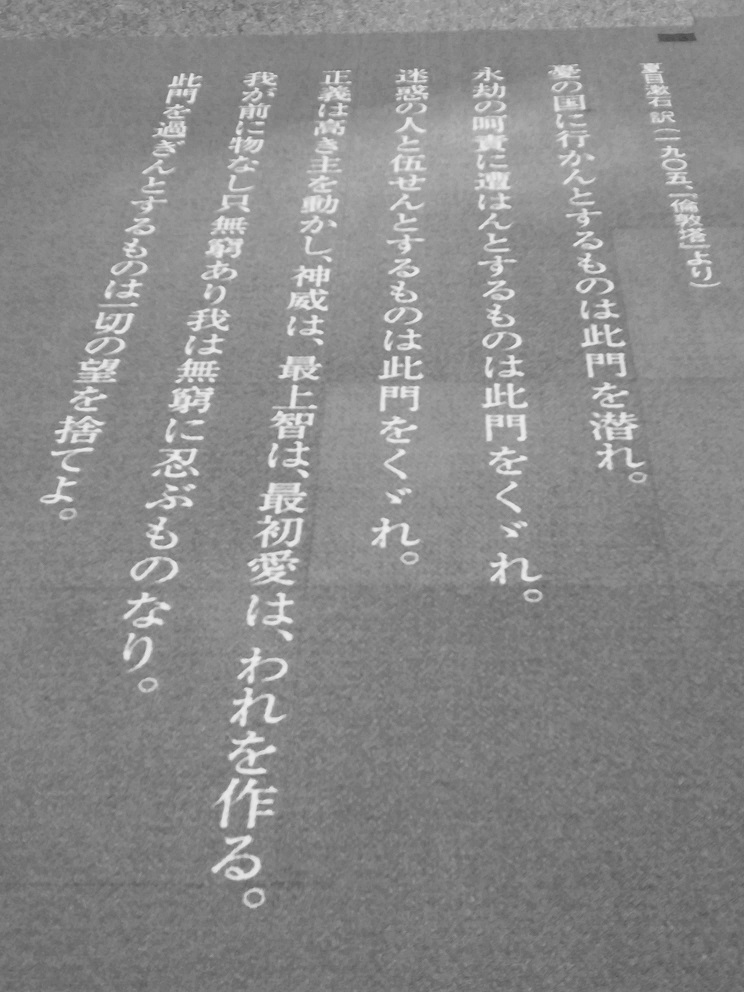 夏目漱石 訳（一九〇五、『倫敦塔』より）
憂の国に行かんとするものは此門を潜れ。
永劫の呵責に遭はんとするものは此門をくゞれ。
迷惑の人と伍せんとするものは此門をくゞれ。
正義は高き主を動かし、神威は、最上智は、最初愛は、われを作る。
我が前に物なし只無窮あり我は無窮に忍ぶものなり。
此門を過ぎんとするものは一切の望を捨てよ。